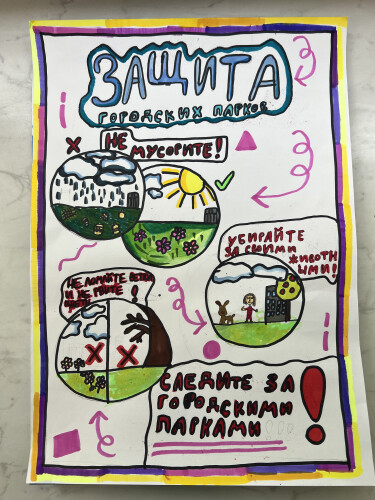 ЗАЩИТА
ГОРОДСКИХ ПАРКОВ
НЕ
МУСОРИТЕ!
УБИРАЙТЕ
ЗА СВОИМИ
ЖИВОТН
ЫМИ!
НЕ ЛОМАЙТЕ ВЕТКИ
И НЕ РВИТЕ
ЦВЕТЫ!
СЛЕДИТЕ ЗА
ГОРОДСКИМИ
ПАРКАМИ!